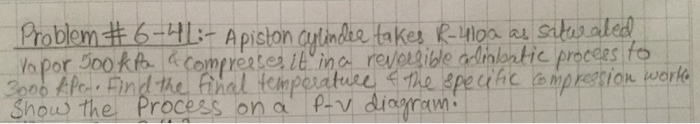 Problem # 6-41:- A piston cylinder takes R-410a as saturated
Vapor 500 kPa & compresses it in a reversible adiabatic process to
3000 kPa. Find the final temperature & the specific compression work.
Show the Process on a P-v diagram.